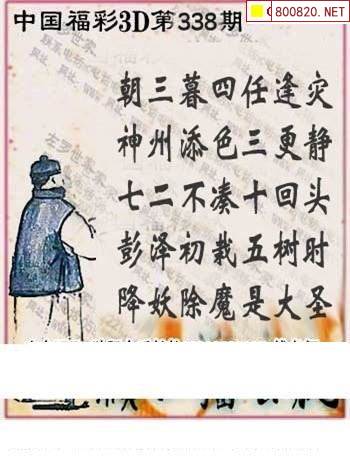 中国福彩3D第338期
800820.NET
朝三暮四任逢灾
神州添色三更静
七二不凑十回头
彭泽初栽五树时
降妖除魔是大圣